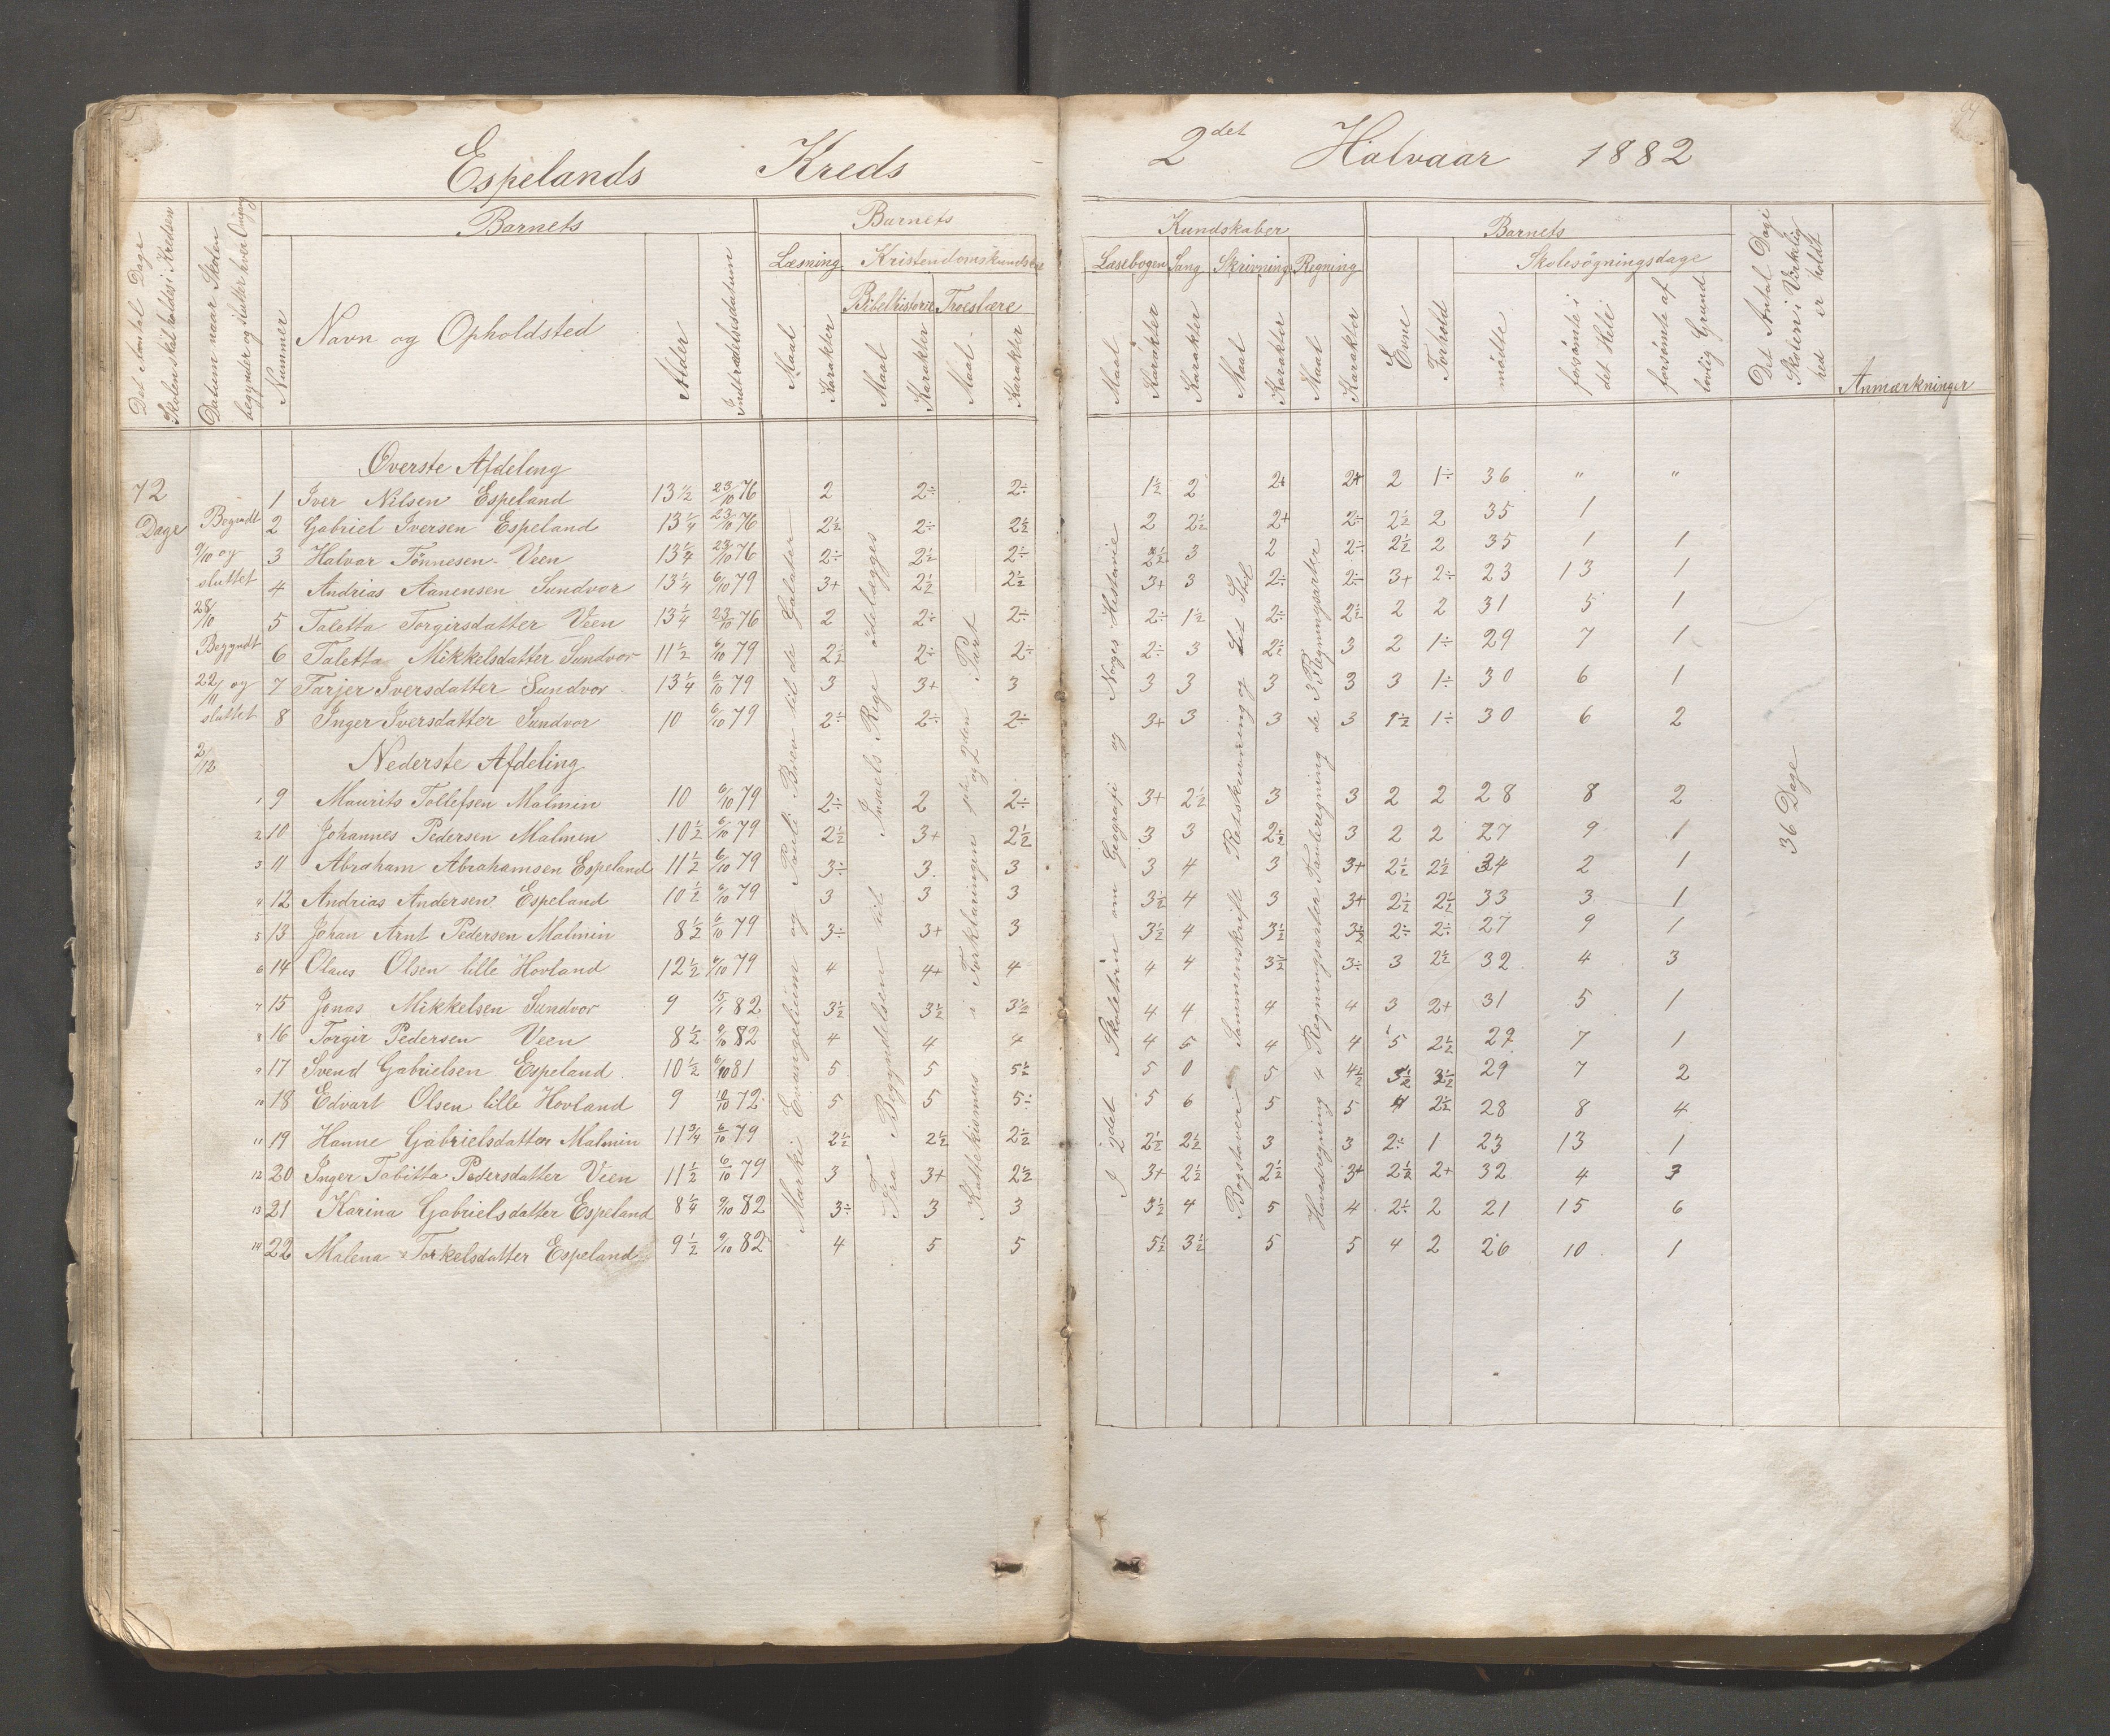 Espelands Kreds
2det Halvaar 1882
Det Antal Dage Skolen skal holdes i Kredsen
Datum naar Skolen begynder og slutter hver Omgang
Barnets
Nummer
Navn og Opholdsted
Alder
Indtrædelsesdatum
Barnets
Læsning
Maal
Karakter
Kristendomskundskab
Bibelhistorie
Maal
Karakter
Troeslære
Maal
Karakter
Kundskaber
Læsebogen
Maal
Karakter
Sang
Karakter
Skrivning
Maal
Karakter
Regning
Maal
Karakter
Barnets
Evne
Forhold
Skolesøgningsdage
mødte
forsømte i det Hele
forsømte af lovlig Grund
Det Antal Dage Skolen i Virkelighed er holdt
Anmærkninger
72 Dage
Begyndt 9/10 og sluttet 28/10
Begyndt 22/11 og sluttet 2/12
Øverste Afdeling
1 Iver Nilsen Espeland 13 1/2 23/10 76 2 2÷ 2÷ 1 1/2 2 2+ 2+ 2 1÷ 36 " "
2 Gabriel Iversen Espeland 13 1/4 23/10 76 2 1/2 2÷ 2 1/2 2 2 1/2 2+ 2÷ 2 1/2 2 35 1
3 Halvor Tönnesen Veen 13 1/4 23/10 76 2÷ 2 1/2 2÷ 2 1/2 3 2 2÷ 2 1/2 2 35 1 1
4 Andrias Aanensen Sundvor 13 1/4 6/10 79 3+ 2 1/2 2 1/2 3+ 3 2÷ 2÷ 3+ 2÷ 23 13 1
5 Taletta Torgirsdatter Veen 13 1/4 23/10 76 2 2÷ 2÷ 2÷ 1 1/2 2÷ 2 1/2 2 2 31 5 1
6 Taletta Mikkelsdatter Sundvor 11 1/2 6/10 79 2 1/2 2÷ 2÷ 2÷ 3 2 1/2 3 2 1÷ 29 7 1
7 Tarjer Iversdatter Sundvor 13 1/4 6/10 79 3 3+ 3 3 3 3 3 3 1÷ 30 6 1
8 Inger Iversdatter Sundvor 10 6/10 79 2÷ 2÷ 2÷ 3+ 3 3 3 1 1/2 1÷ 30 6 2
Nederste Afdeling
1 9 Maurits Tollefsen Malmin 10 6/10 79 2÷ 2 2÷ 3+ 2 1/2 3 3 2 2 28 8 2
2 10 Johannes Pedersen Malmin 10 1/2 6/10 79 2 1/2 3+ 2 1/2 3 3 2 1/2 3 2 2 27 9 1
3 11 Abraham Abrahamsen Espeland 11 1/2 6/10 79 3÷ 3 3 3 4 3 3+ 2 1/2 2 1/2 34 2 1
4 12 Andrias Andersen Espeland 10 1/2 6/10 79 3 3 3 3 1/2 4 3 3+ 2 1/2 2 1/2 33 3 1
5 13 Johan Arnt Pedersen Malmin 8 1/2 6/10 79 3÷ 3+ 3 3 1/2 4 3 1/2 3 1/2 2÷ 2÷ 27 9 1
6 14 Olaus Olsen lille Hovland 12 1/2 6/10 79 4 4+ 4 4 4 3 1/2 3÷ 3 2 1/2 32 4 3
7 15 Jonas Mikkelsen Sundvor 9 15/1 82 3 1/2 3 1/2 3 1/2 4 4 4 4 3 2+ 31 5 1
8 16 Torgir Pedersen Veen 8 1/2 9/10 82 4 4 4 4 5 4 4 5 2 1/2 29 7 1
9 17 Svend Gabrielsen Espeland 10 1/2 6/10 81 5 5 5 1/2 5 0 5 4 1/2 3 1/2 3 1/2 29 7 2
10 18 Edvart Olsen lille Hovland 9 5 5 5÷ 5 6 5 5 4 2 1/2 28 8 4
11 19 Hanne Gabrielsdatter Malmin 11 3/4 6/10 79 2 1/2 2 1/2 2 1/2 2 1/2 2 1/2 3 3 2÷ 1 23 13 1
12 20 Inger Tabitta Pedersdatter Veen 11 1/2 6/10 79 3 3+ 2 1/2 3+ 2 1/2 2 1/2 3+ 2 1/2 2+ 32 4 3
13 21 Karina Gabrielsdatter Espeland 8 1/4 9/10 82 3÷ 3 3 3 1/2 4 5 4 2÷ 2 21 15 6
14 22 Malena Torkelsdatter Espeland 9 1/2 9/10 82 4 5 5 5 1/2 3 1/2 5 5 4 2 26 10 1
Marki Evangelium og Pauli Brev til de Galater
Fra Begyndelsen til Israels Rige ödelægges
Kattekismus i Forklaringen 1ste og 2den Part
I 2det Skoletrin om Geografi og Norges Historie
Bogstaver Sammenskrift Retskrivning og Let Stil
Hovedregning 4 Regningsarter Tavleregning de 3 Regningsarter
36 Dage